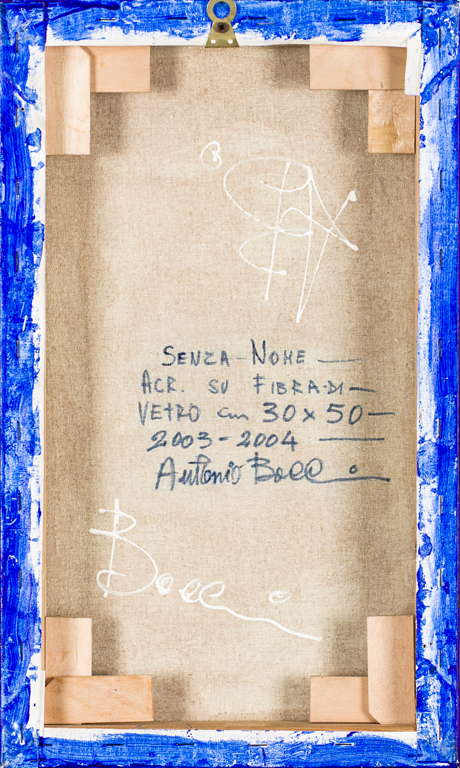 SENZA-NOME —
ACR. SU FIBRA-DI-
VETRO cm 30x50-
2003-2004 —
Antonio Bocci
Bocci